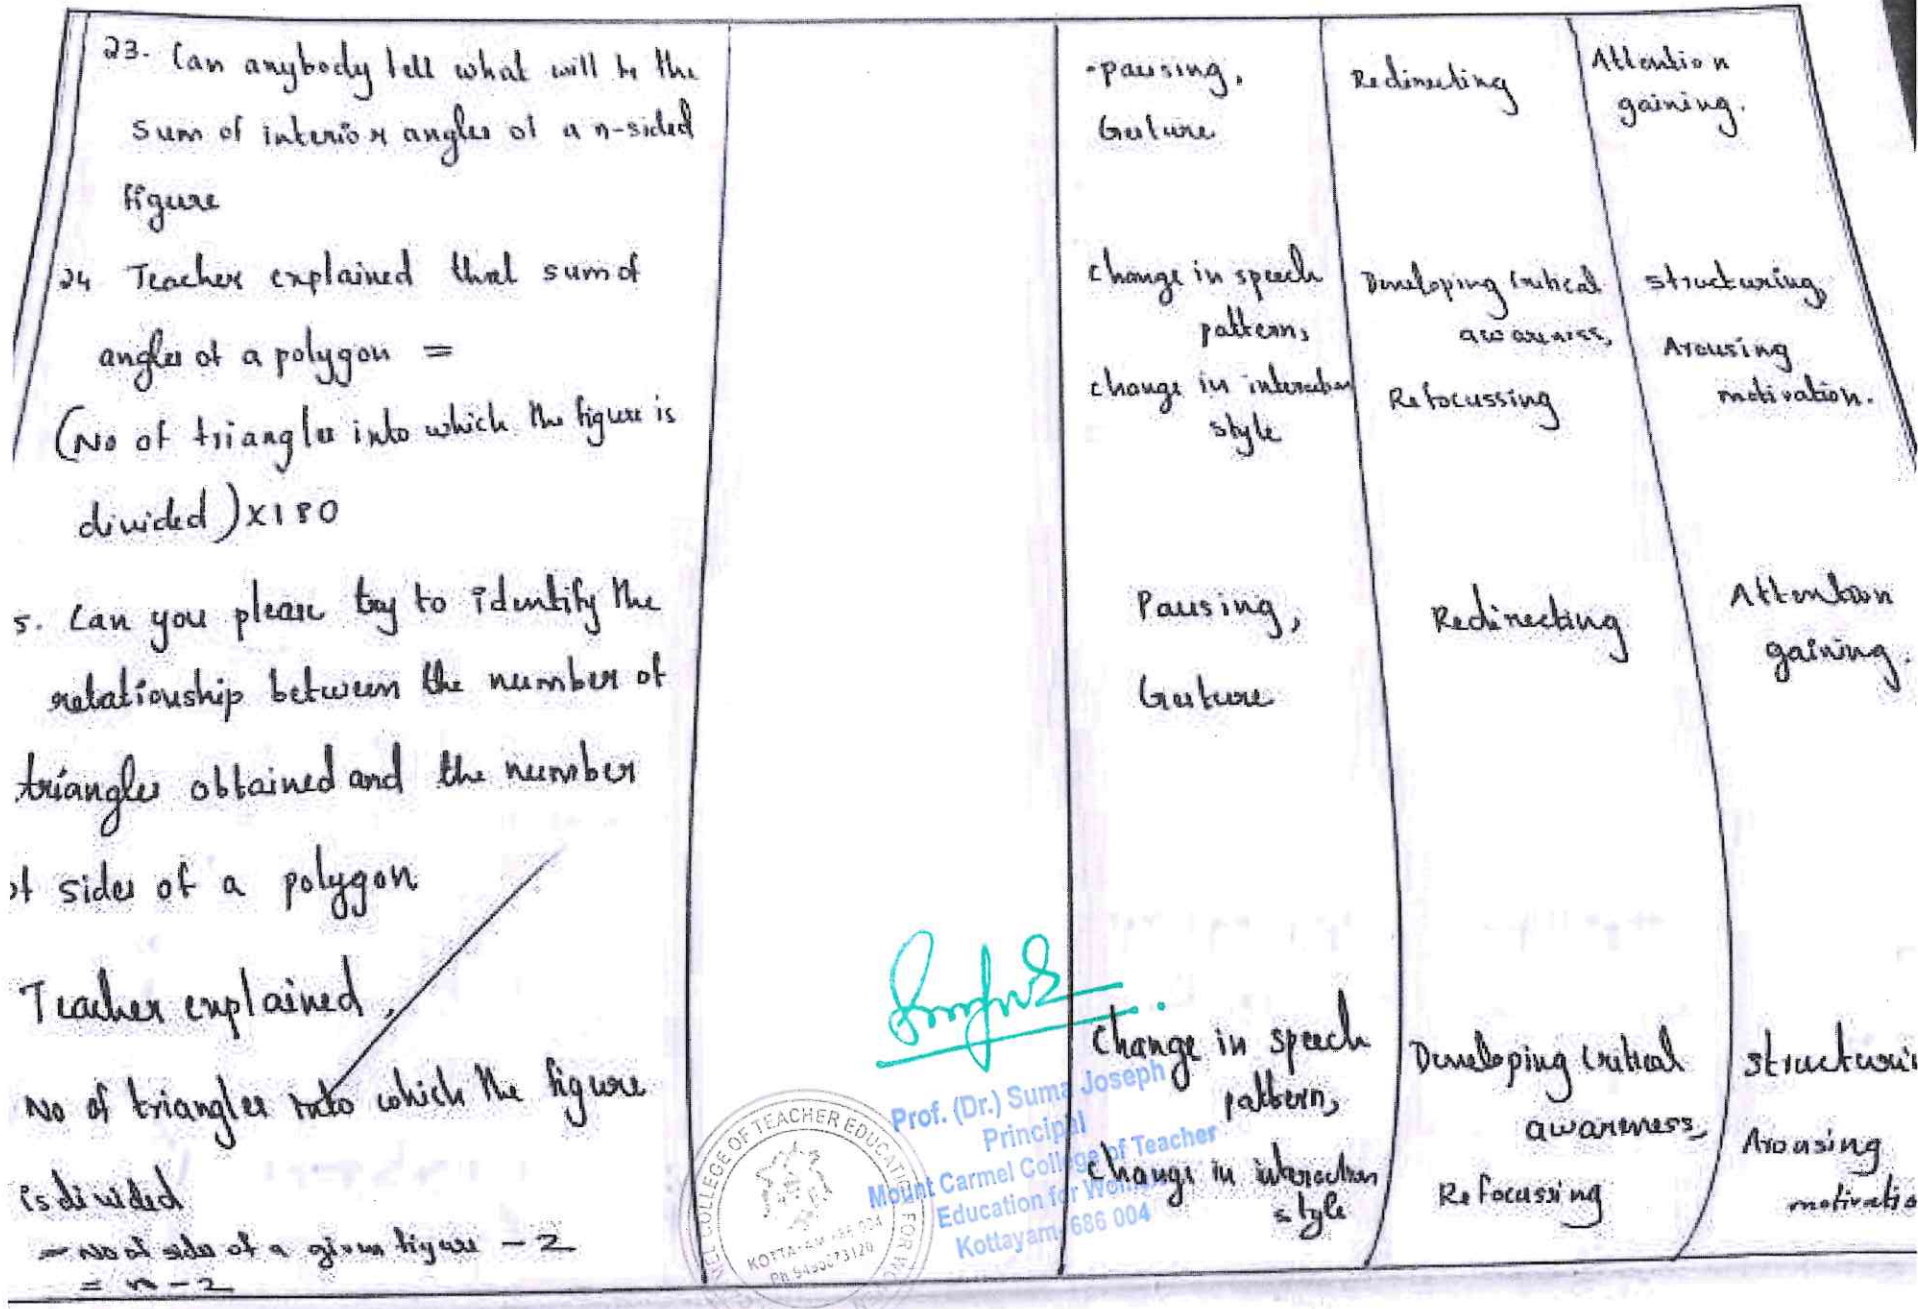 23. Can anybody tell what will be the
sum of interior angles of a n-sided
figure
24 Teacher explained that sum of
angles of a polygon =
(No of triangles into which the figure is
divided)x180
5. Can you please try to identify the
relationship between the number of
triangles obtained and the number
of sides of a polygon
Teacher explained,
No of triangles into which the figure
is divided
= No of sides of a given figure - 2
= n-2
-pausing,
Gesture
Change in speech
pattern,
change in interaction
style
Pausing,
Gesture
Change in speech
pattern,
change in interaction
style
Redirecting
Developing Critical
awareness,
Refocussing
Redirecting
Developing Critical
awareness,
Refocussing
Attention
gaining.
structuring,
Arousing
motivation.
Attention
gaining.
structuri
Arousing
motivatio
Prof. (Dr.) Suma Joseph
Principal
Mount Carmel College of Teacher
Education for Women
Kottayam- 686 004
COLLEGE OF TEACHER EDUCATION FOR WO
KOTTAYAM-686 004